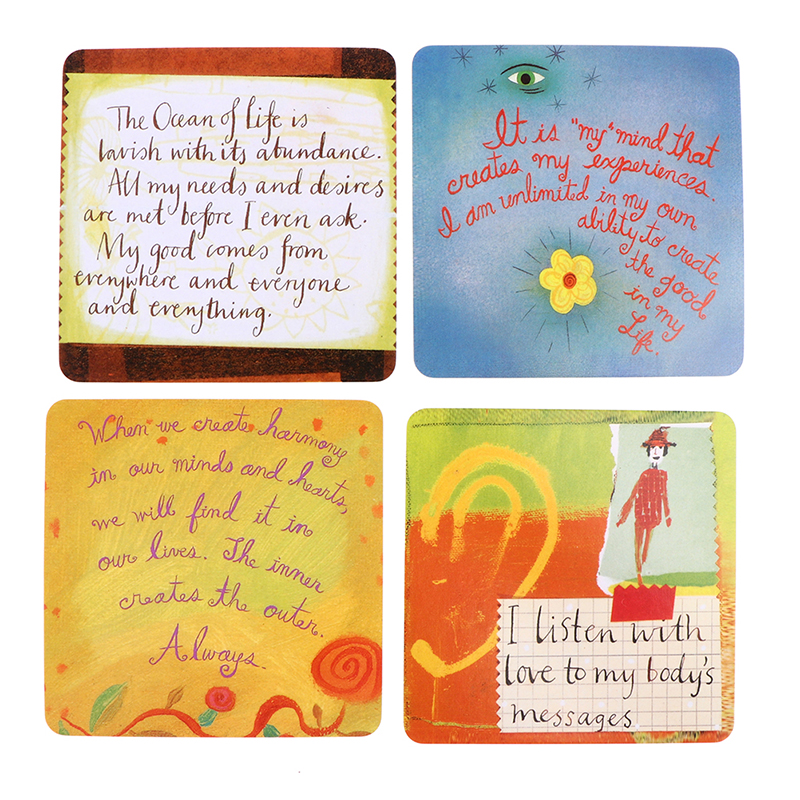 The Ocean of Life is
lavish with its abundance.
All my needs and desires
are met before I even ask.
My good comes from
everywhere and everyone
and everything.
It is "my" mind that
creates my experiences.
I am unlimited in my own
ability to create
the good
in my
Life.
When we create harmony
in our minds and hearts,
we will find it in
our lives. The inner
creates the outer.
Always.
I listen with
love to my body's
messages